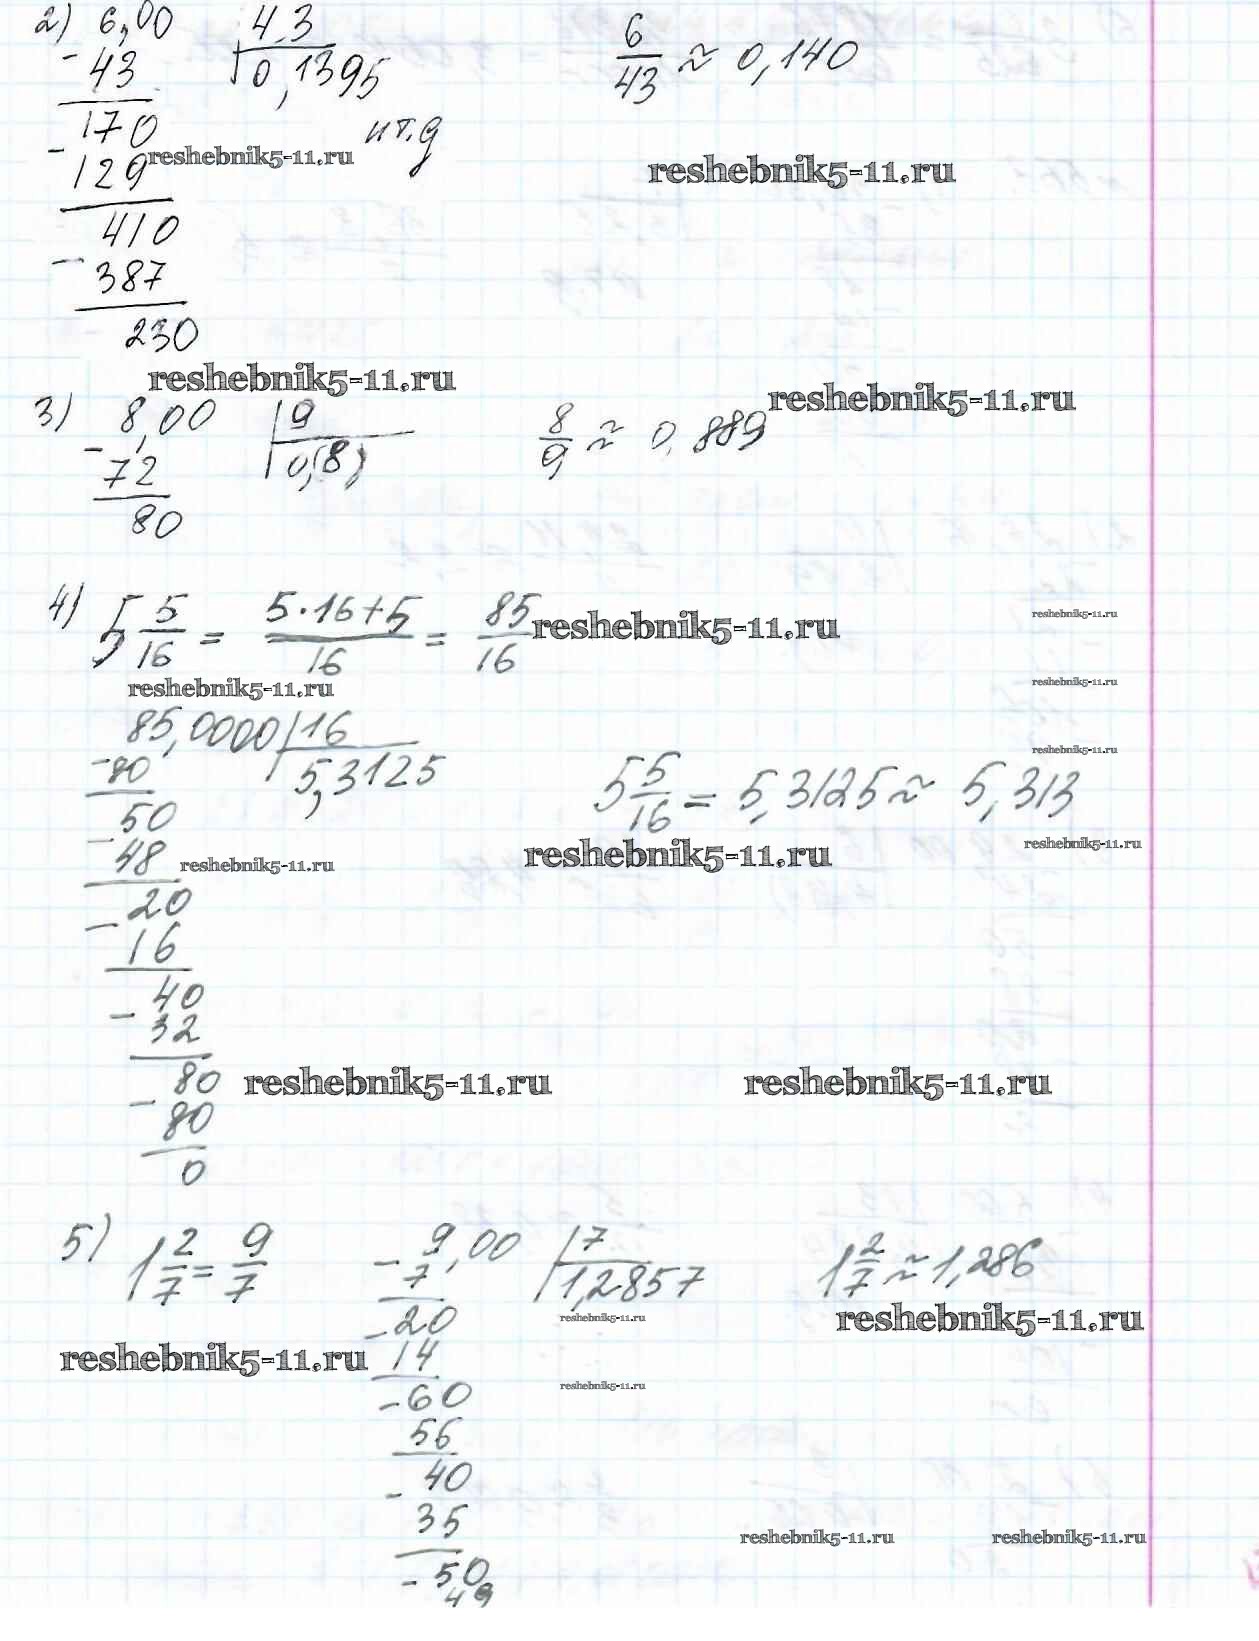 2) 6,00 43 6/43 ≈ 0,140
- 43 0,1395
170 и т.д
- 129 reshebnik5-11.ru reshebnik5-11.ru
410
- 387
230
reshebnik5-11.ru reshebnik5-11.ru
3) 8,00 9 8/9 ≈ 0,889
- 72 0,(8)
80
4) 5 5/16 = 5·16+5/16 = 85/16 reshebnik5-11.ru reshebnik5-11.ru
reshebnik5-11.ru reshebnik5-11.ru
85,0000 16 reshebnik5-11.ru
- 80 5,3125 5 5/16 = 5,3125 ≈ 5,313
50
- 48 reshebnik5-11.ru reshebnik5-11.ru reshebnik5-11.ru
20
- 16
40
- 32
80 reshebnik5-11.ru reshebnik5-11.ru
- 80
0
5) 1 2/7 = 9/7 9,00 7 1 2/7 ≈ 1,286
- 7 1,2857
20 reshebnik5-11.ru reshebnik5-11.ru
reshebnik5-11.ru - 14
60 reshebnik5-11.ru
- 56
40
- 35 reshebnik5-11.ru reshebnik5-11.ru
50
- 49